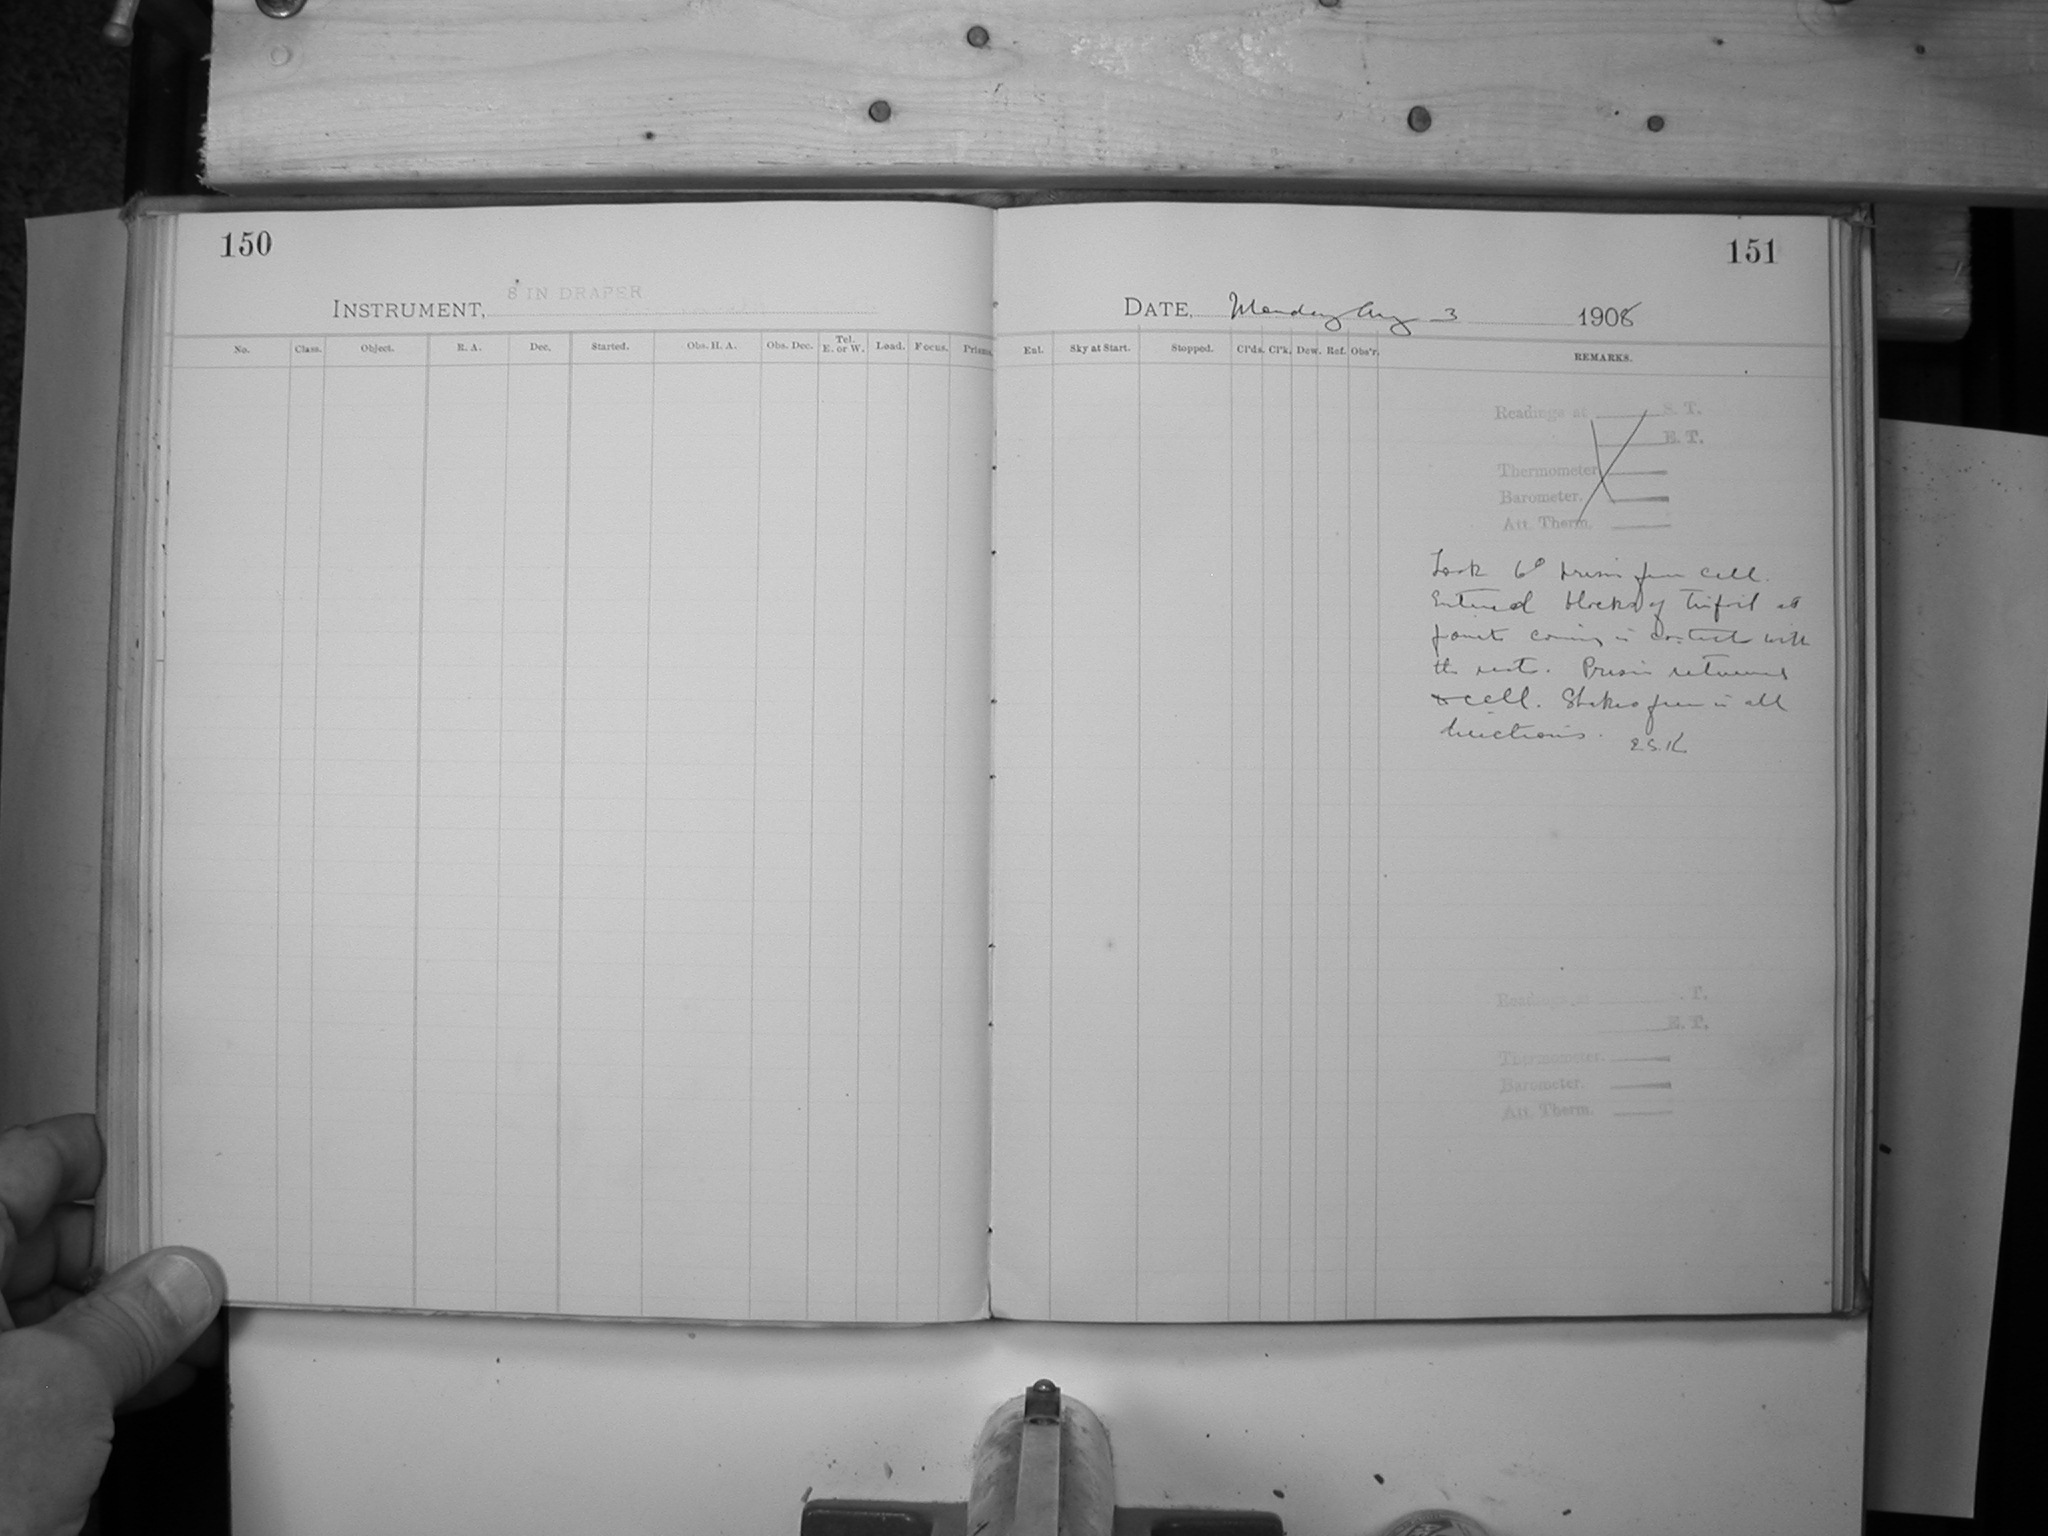 150
151
8 IN DRAPER
INSTRUMENT,
DATE, Monday Aug 3 1908
No. Class. Object. R. A. Dec. Started. Obs. H. A. Obs. Dec. Tel. E. or W. Load. Focus. Prisms.
Ent. Sky at Start. Stopped. Cl'ds. Cl'k. Dew. Ref. Obs'r. REMARKS.
Readings at S. T.
E. T.
Thermometer
Barometer.
Att. Therm.
Took 6° prism from cell.
Entered blocks of tinfoil at
points coming in contact with
the rests. Prism returned
to cell. Shakes free in all
directions. E.S.K
Readings at . T.
E. T.
Thermometer.
Barometer.
Att. Therm.